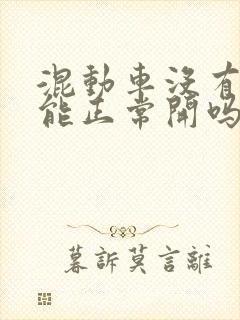 混動車沒有
能正常開嗎
暮訴莫言離